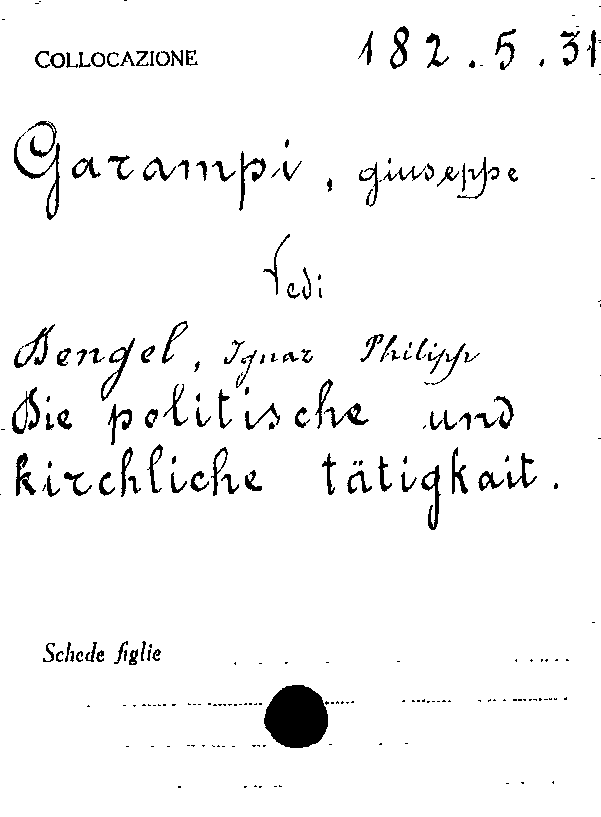 COLLOCAZIONE 182.5.31
Garampi, giuseppe
Vedi
Dengel, Ignaz Philipp
Die politische und
kirchliche tätigkait.
Schede figlie